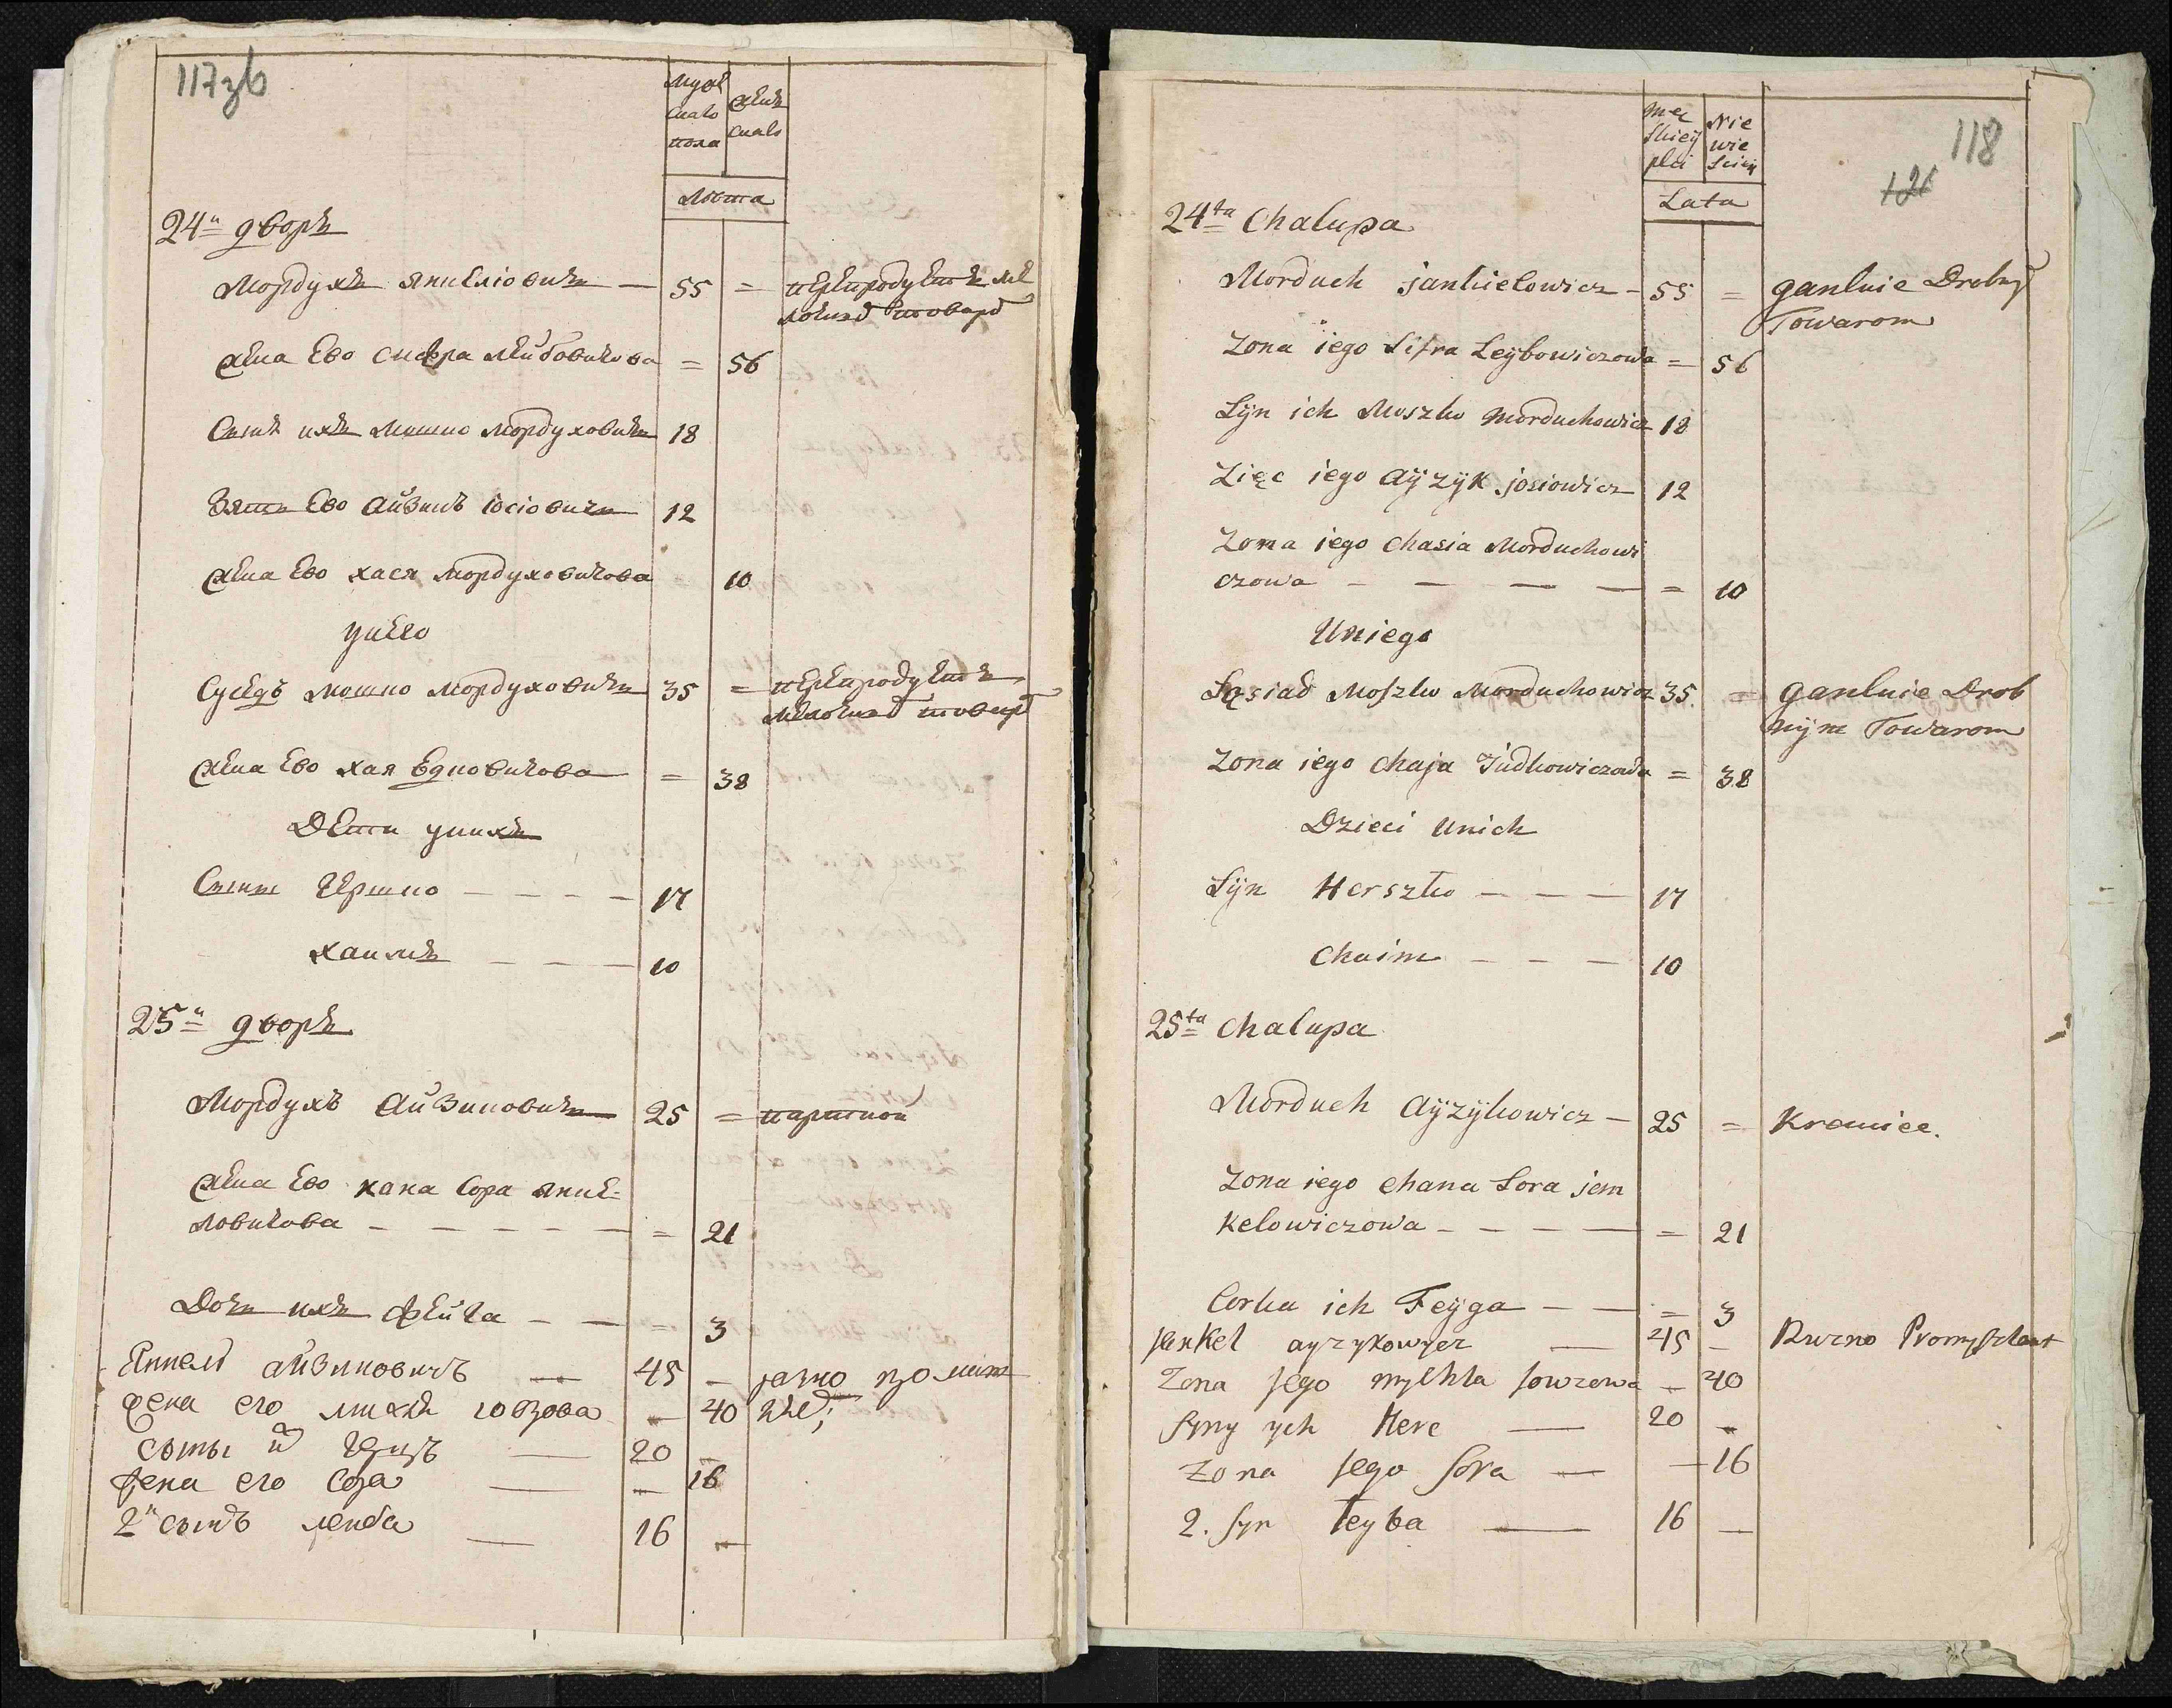 117зв
Муж
Женс
скаго
скаго
пола
Лѣта
24й дворъ
Мордухъ Янкеліовичъ — 55 = перепродуетъ ме
лочнӑ товарӑ
Жена Ево Сифра Лейбовичова = 56
Сынъ ихъ Мошко Мордуховичъ 18
Зять Ево Айзикъ Іосіовичъ 12
Жена Ево Хася Мордуховичова 10
у нево
Суседъ Мошко Мордуховичъ 35 = перепродуетъ
мелочнӑ товарӑ
Жена Ево Хая Едковичова = 38
Дети у нихъ
Сынъ Гершко — — — — 17
Хаимъ — — — 10
25й дворъ
Мордухъ Айзиковичъ 25 =
Жена Ево Хана Сора Янке=
ловичова — — — — — = 21
Дочь ихъ Фейга — — = 3
Янкель Айзиковичъ — 45 —
Жена его — 40
Герцъ — 20 —
Жена его Сора — — 16
2й сынъ Лейба — 16 —
118
121
Mę
skiey
płci
Nie
wie
sciey
Lata
24ta Chalupa
Morduch jankielowicz — 55 = ganluie Drobnÿ
Towarom
Zona iego Sifra Leybowiczowa = 56
Syn ich Moszko Morduchowicz 18
Zięc iego Ayzyk josiowicz 12
Zona iego Chasia Morduchowi
czowa — — — — = 10
U niego
Sąsiad Moszko Morduchowicz 35 = ganluie Drob
nym Towarom
Zona iego Chaja Judkowiczowa = 38
Dzieci u nich
Syn Herszko — — — 17
Chaim — — — 10
25ta Chalupa
Morduch Ayzykowicz — 25 = Kramiec.
Zona iego Chana Sora jan
kelowiczowa — — — — = 21
Corka ich Feyga — — = 3
jankel ayzykowicz — 45 —
Zona jego mychla jowzowa — 40
syny ych Herc — 20 —
Zona jego sora — — 16
2. syn leyba — 16 —